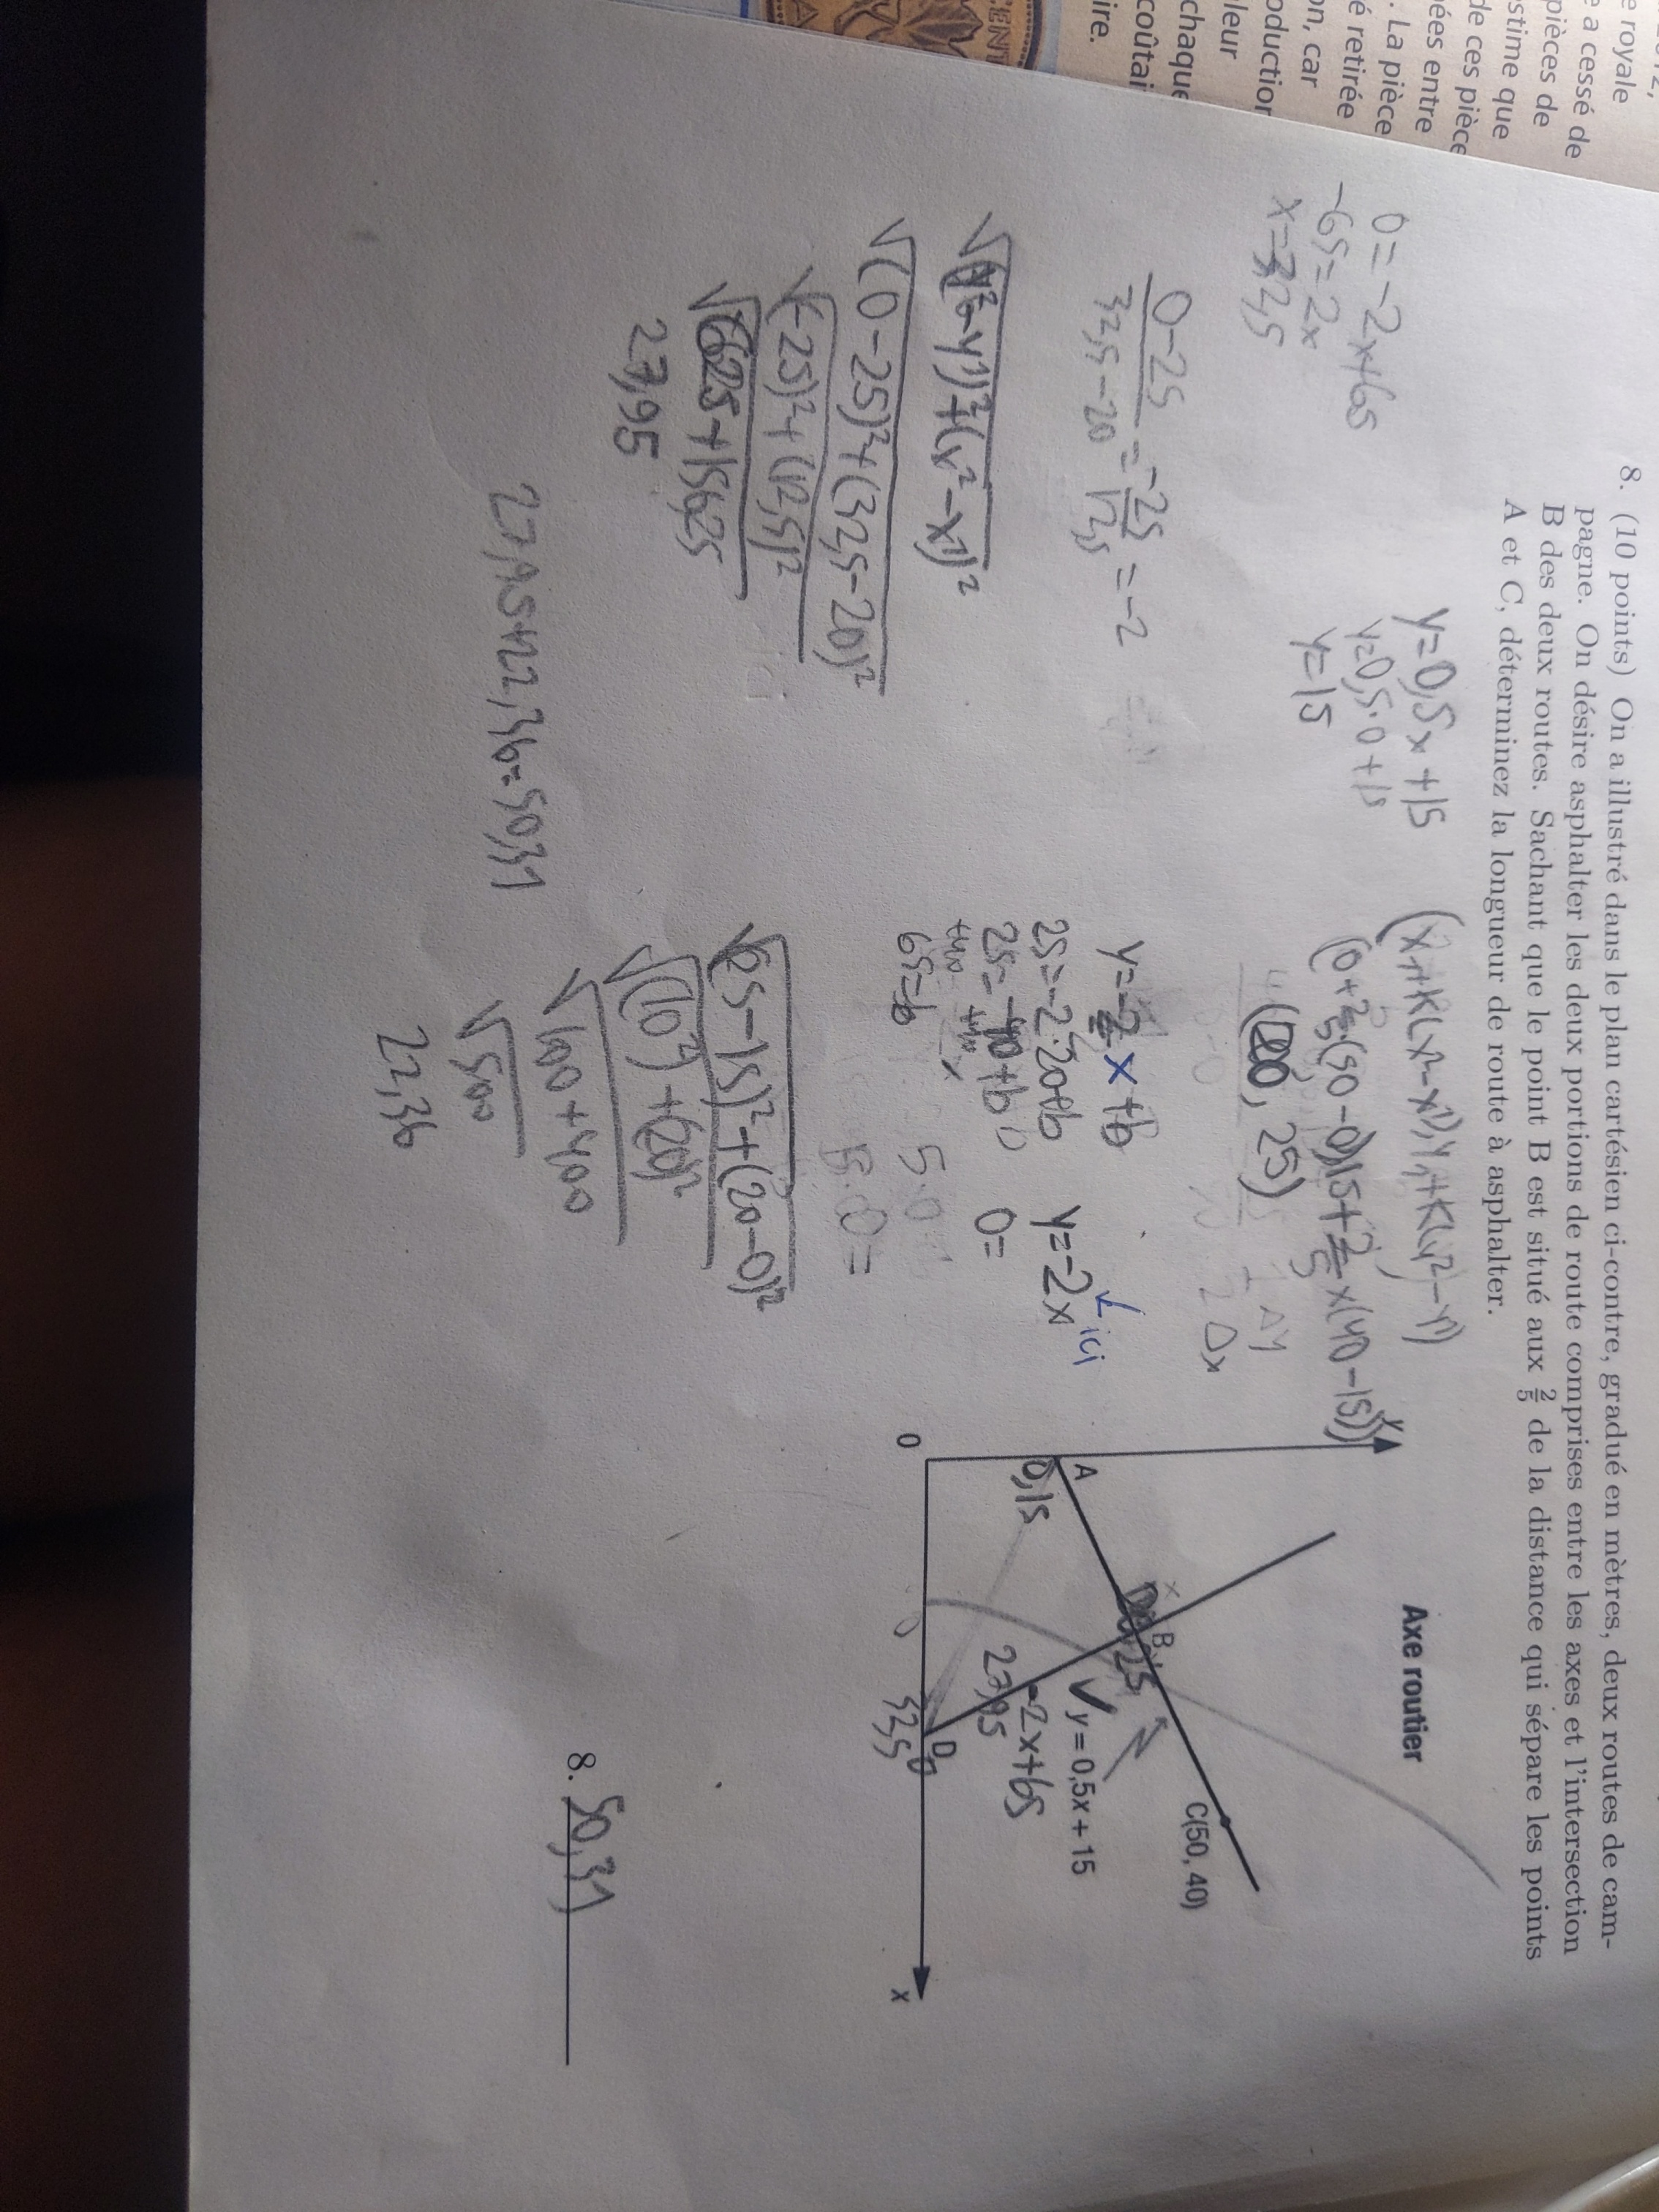 e royale
e a cessé de
pièces de
estime que
de ces pièce
ées entre
. La pièce
é retirée
on, car
oduction
leur
chaque
coûtai
ire.
CENT
8. (10 points) On a illustré dans le plan cartésien ci-contre, gradué en mètres, deux routes de cam-
pagne. On désire asphalter les deux portions de route comprises entre les axes et l'intersection
B des deux routes. Sachant que le point B est situé aux 2/5 de la distance qui sépare les points
A et C, déterminez la longueur de route à asphalter.
0=-2x+65
-65=-2x
x=32,5
y=0,5x+15
y=0,5·0+15
y=15
(x1+K(x²-x1), y1+K(y²-y1)
(0+2/5(50-0),15+2/5x(40-15))
(20, 25)
Δy
Δx
0-25/32,5-20 = -25/12,5 = -2
y=-2x+b
25=-2·20+b
25=-40+b
+40 +40
65=b
y=-2x
0=
ici
√(y²-y1)²+(x²-x1)²
√(0-25)²+(32,5-20)²
√(-25)²+(12,5)²
√625+156,25
27,95
√(25-15)²+(20-0)²
√(10)²+(20)²
√100+400
√500
22,36
27,95+22,36=50,31
Axe routier
y
A
0,15
B
25
C(50, 40)
y = 0,5x + 15
-2x+65
27,95
D
32,5
0
0
x
8. 50,31